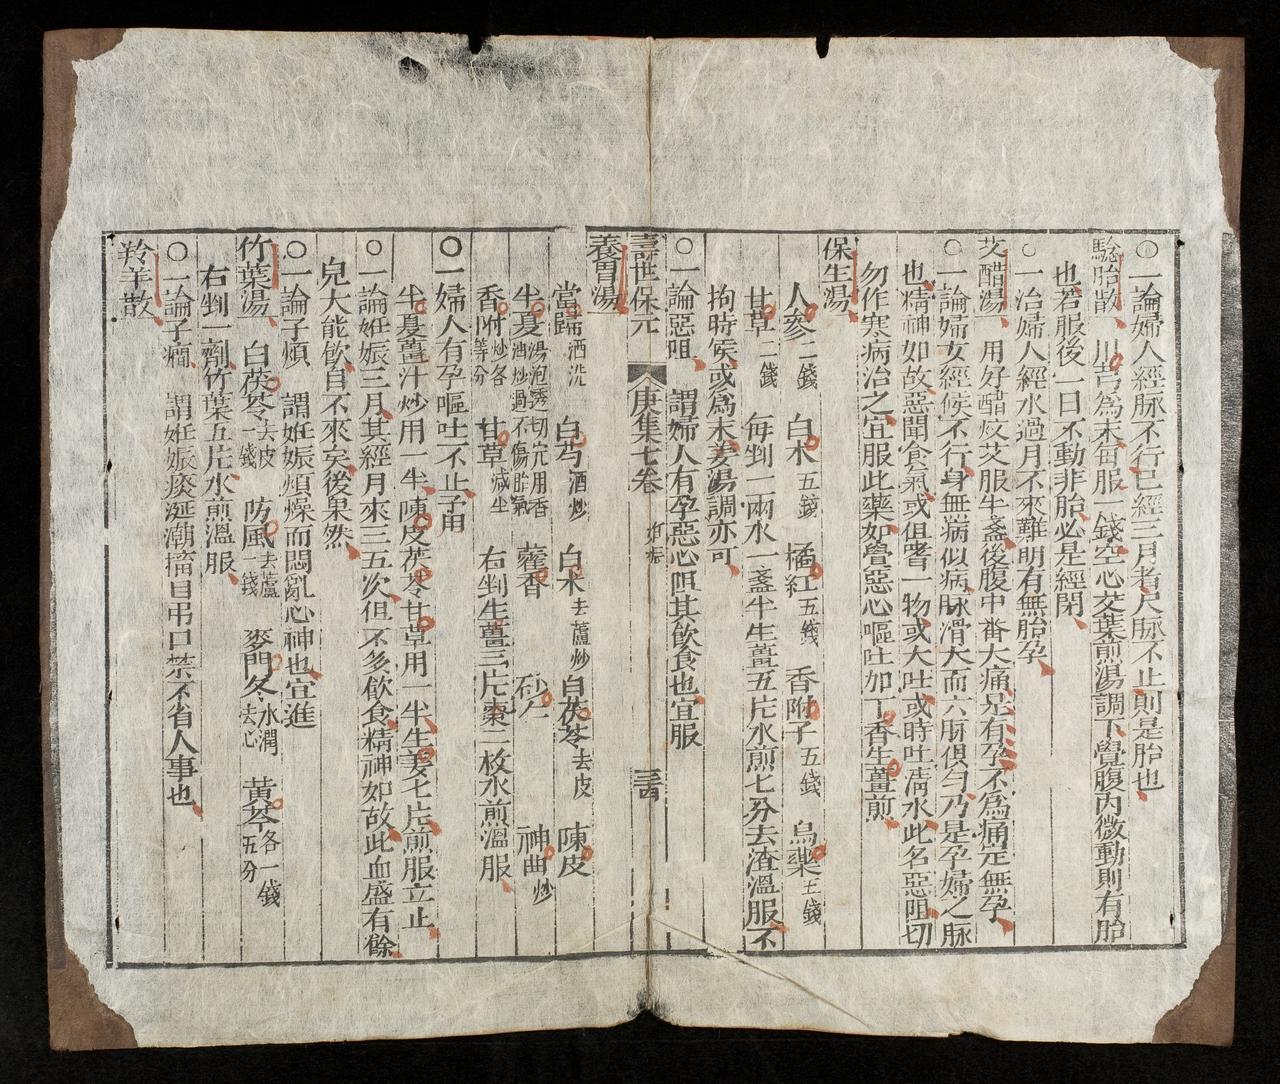 〇一論婦人經脉不行已經三月者尺脉不止則是胎也
驗胎散　川芎為末每服一錢空心艾葉煎湯調下覺腹內微動則有胎
也若服後一日不動非胎必是經閉
〇一治婦人經水過月不來難明有無胎孕
艾醋湯　用好醋炆艾服半盞後腹中畨大痛是有孕不為痛定無孕
〇一論婦女經候不行身無病似病脉滑大而六脉俱勻乃是孕婦之脉
也精神如故惡聞食氣或但嗜一物或大吐或時吐淸水此名惡阻切
勿作寒病治之宜服此藥如覺惡心嘔吐加丁香生薑煎
保生湯
人參二錢　白朮五錢　橘紅五錢　香附子五錢　烏藥五錢
甘草二錢　每剉一兩水一盞半生薑五片水煎七分去渣溫服不
拘時候或為末姜湯調亦可
〇一論惡阻　謂婦人有孕惡心阻其飲食也宜服
壽世保元　庚集七卷　妊娠　三西
養胃湯
當歸酒洗　白芍酒炒　白朮去蘆炒　白茯苓去皮　陳皮
半夏湯泡透切片用香油炒過不傷胎氣　藿香　砂仁　神曲炒
香附炒各等分　甘草減半　右剉生薑三片棗二枚水煎溫服
〇一婦人有孕嘔吐不止子用
半夏薑汁炒用一半陳皮茯苓甘草用一半生姜七片煎服立止
〇一論妊娠三月其經月來三五次但不多飲食精神如故此血盛有餘
兒大能飲自不來矣後果然
〇一論子煩　謂妊娠煩燥而悶亂心神也宜進
竹葉湯　白茯苓去皮一錢　防風去蘆一錢　麥門冬水潤去心　黃芩各一錢五分
右剉一劑竹葉五片水煎溫服
〇一論子癎　謂妊娠痰涎潮搐目吊口禁不省人事也
羚羊散